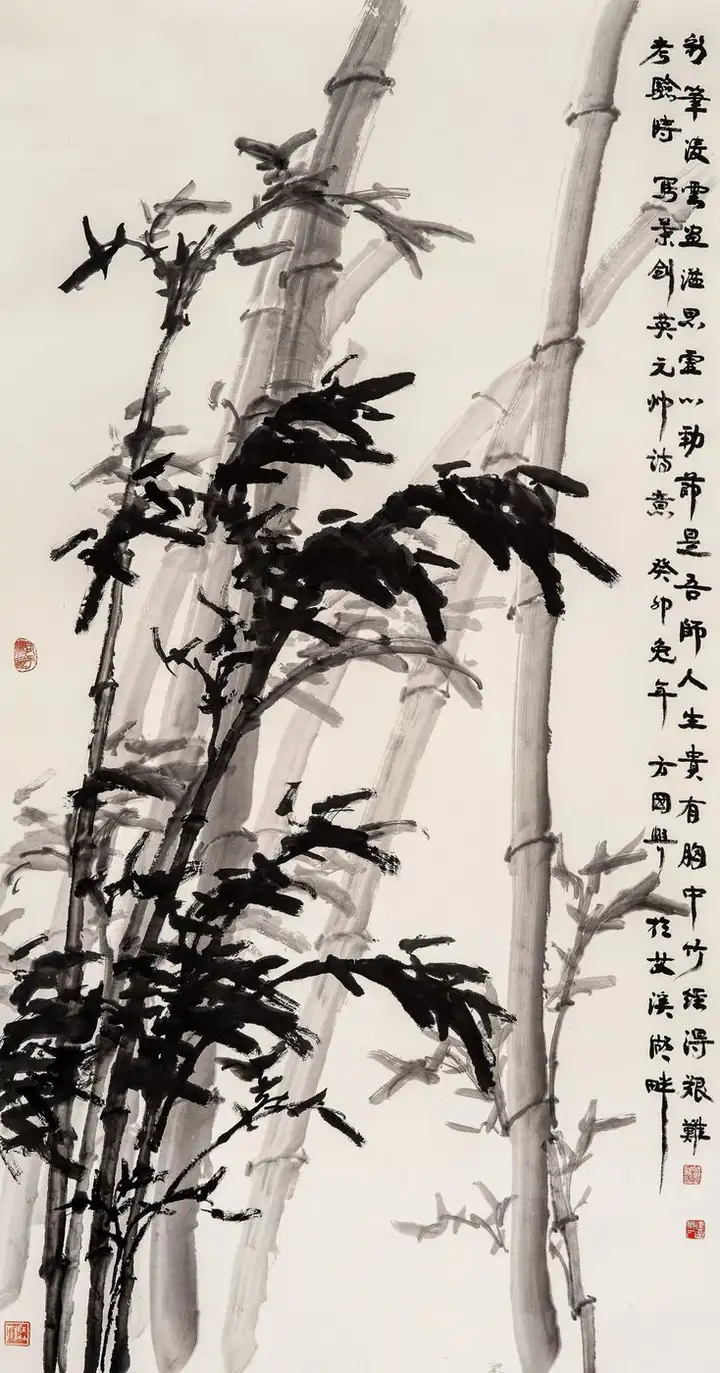 彩筆凌雲画溢思虚心勁節是吾師人生貴有胸中竹經得艱難
考驗時 寫葉剑英元帅诗意 癸卯兔年 方國興 於艾溪湖畔